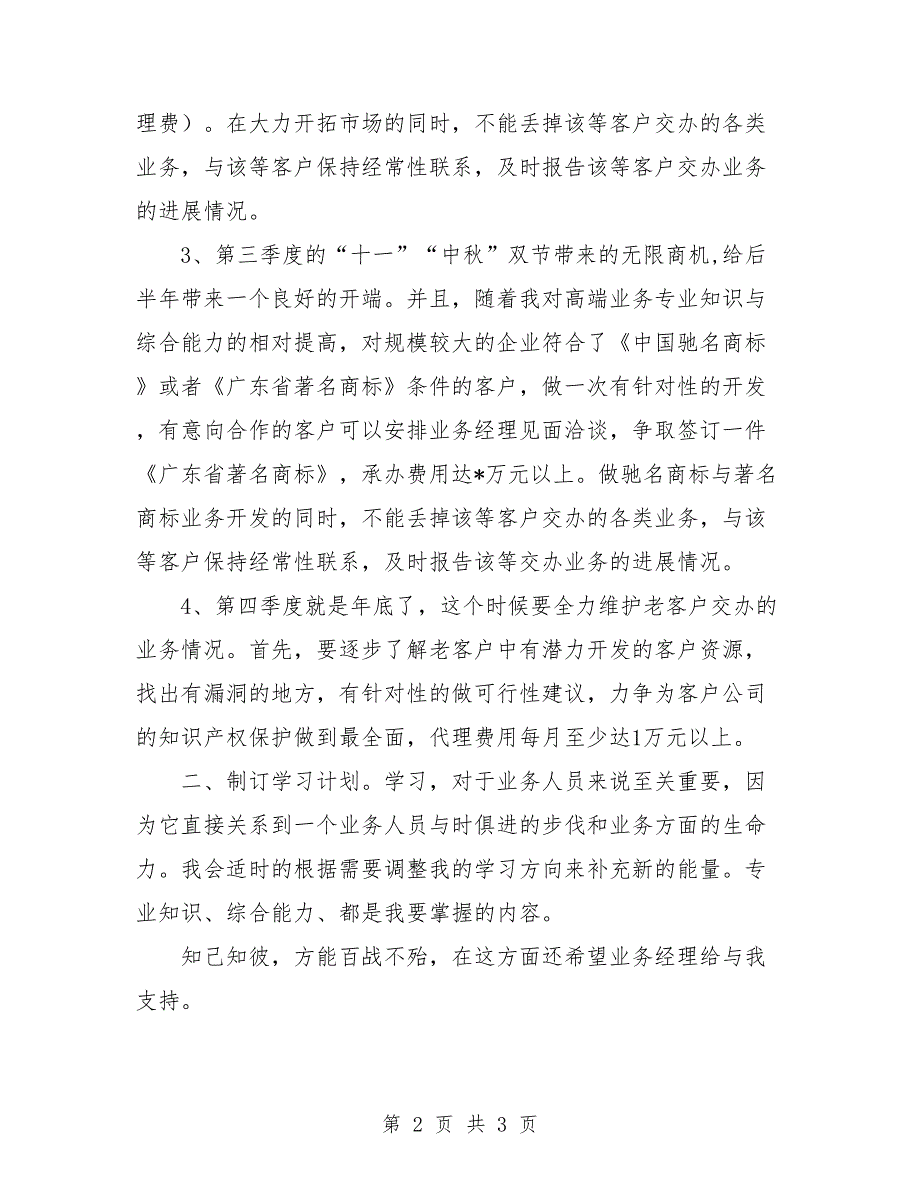 理费）。在大力开拓市场的同时，不能丢掉该等客户交办的各类
业务，与该等客户保持经常性联系，及时报告该等客户交办业务
的进展情况。
3、第三季度的“十一”“中秋”双节带来的无限商机,给后
半年带来一个良好的开端。并且，随着我对高端业务专业知识与
综合能力的相对提高，对规模较大的企业符合了《中国驰名商标
》或者《广东省著名商标》条件的客户，做一次有针对性的开发
，有意向合作的客户可以安排业务经理见面洽谈，争取签订一件
《广东省著名商标》，承办费用达*万元以上。做驰名商标与著名
商标业务开发的同时，不能丢掉该等客户交办的各类业务，与该
等客户保持经常性联系，及时报告该等交办业务的进展情况。
4、第四季度就是年底了，这个时候要全力维护老客户交办的
业务情况。首先，要逐步了解老客户中有潜力开发的客户资源，
找出有漏洞的地方，有针对性的做可行性建议，力争为客户公司
的知识产权保护做到最全面，代理费用每月至少达1万元以上。
二、制订学习计划。学习，对于业务人员来说至关重要，因
为它直接关系到一个业务人员与时俱进的步伐和业务方面的生命
力。我会适时的根据需要调整我的学习方向来补充新的能量。专
业知识、综合能力、都是我要掌握的内容。
知己知彼，方能百战不殆，在这方面还希望业务经理给与我
支持。
第 2 页 共 3 页